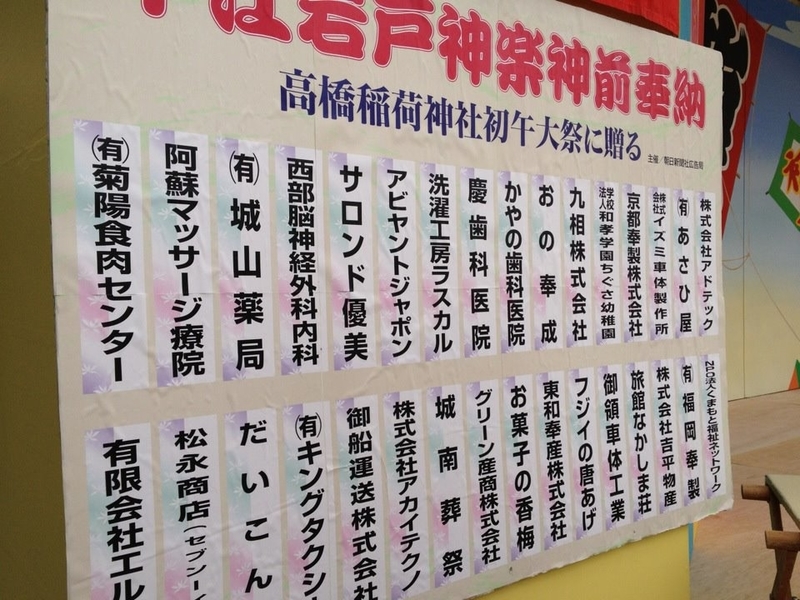 中江岩戸神楽神前奉納
高橋稲荷神社初午大祭に贈る
主催／朝日新聞社広告局
株式会社アドテック
㈲あさひ屋
株式会社イズミ車体製作所
京都奉製株式会社
学校法人和孝学園ちぐさ幼稚園
九相株式会社
おの奉成
かやの歯科医院
慶歯科医院
洗濯工房ラスカル
アビヤントジャポン
サロンド優美
西部脳神経外科内科
㈲城山薬局
阿蘇マッサージ療院
㈲菊陽食肉センター
NPO法人くまもと福祉ネットワーク
㈲福岡奉製
株式会社吉平物産
旅館なかしま荘
御領車体工業
フジイの唐あげ
東和奉産株式会社
お菓子の香梅
グリーン産商株式会社
城南葬祭
株式会社アカイテクノ
御船運送株式会社
㈲キングタクシ
だいこん
松永商店(セブンーイ
有限会社エル